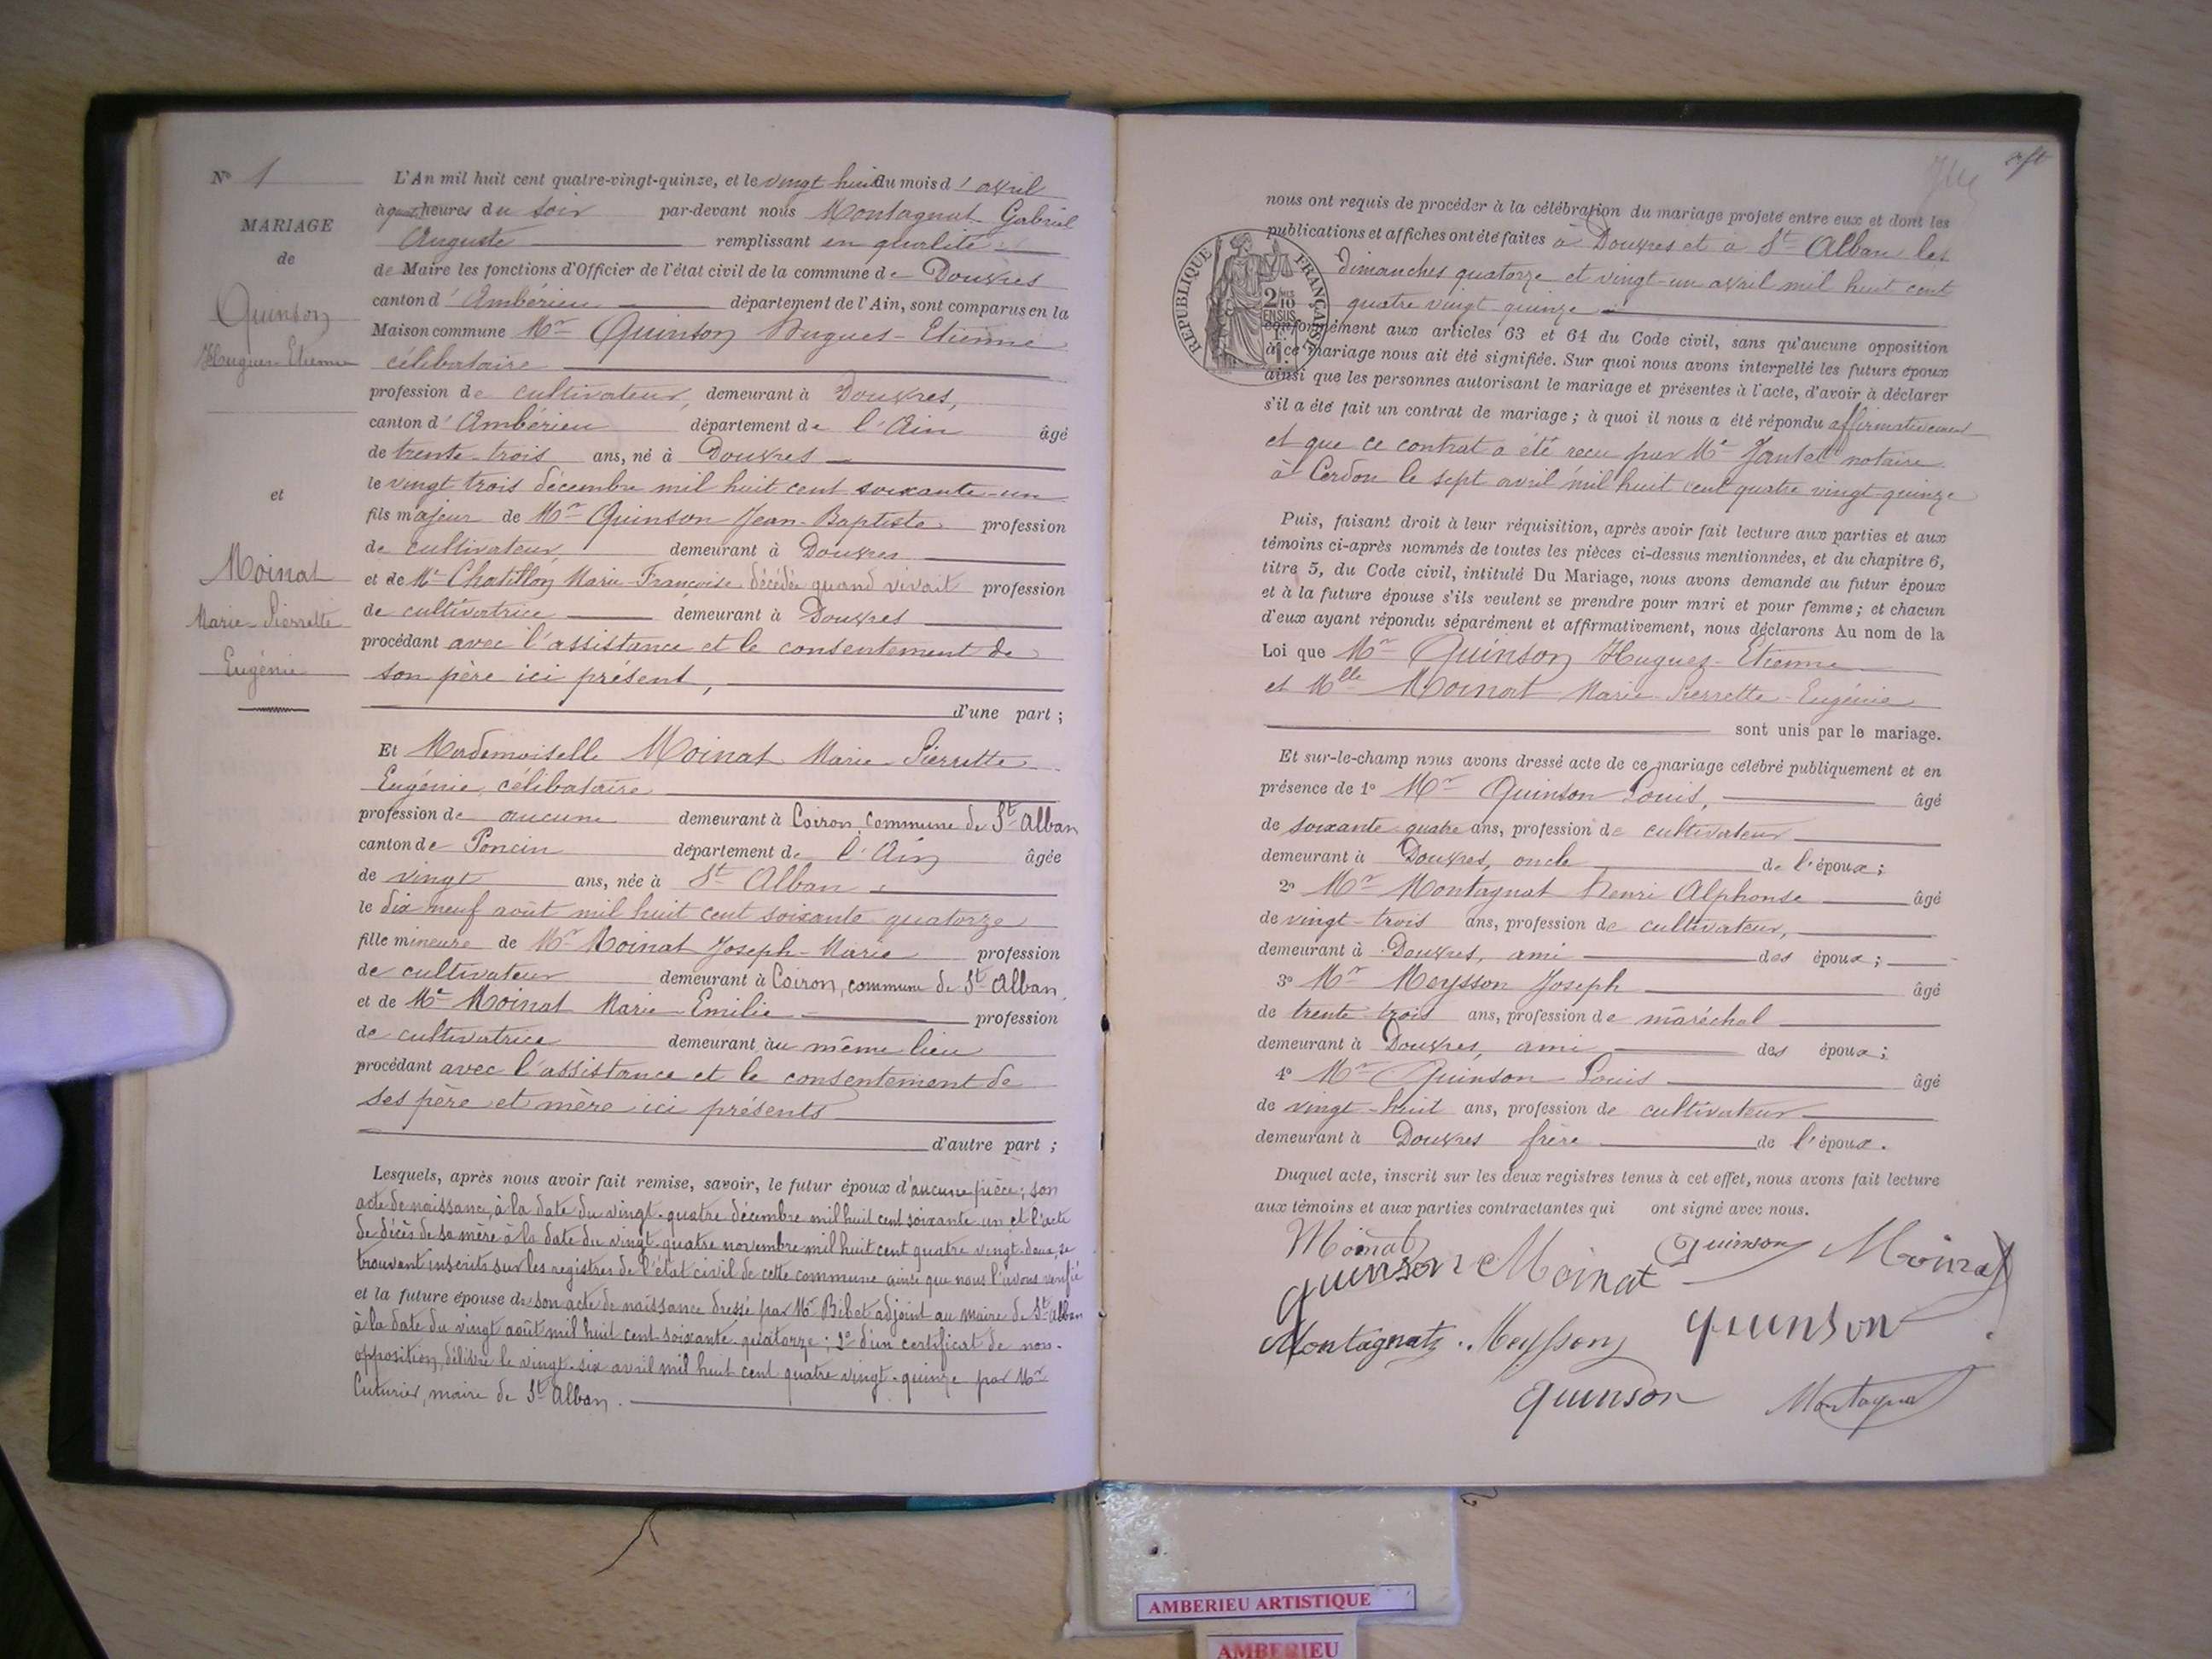 N° 1
MARIAGE
de
Quinson
Hugues-Etienne
et
Moinat
Marie-Pierrette
Eugénie
L'An mil huit cent quatre-vingt-quinze, et le vingt huit du mois d' avril
à quatre heures du soir par-devant nous Montagnat Gabriel
Auguste remplissant en qualité
de Maire les fonctions d'Officier de l'état civil de la commune de Douvres
canton d' Ambérieu département de l'Ain, sont comparus en la
Maison commune Mr Quinson Hugues-Etienne
célibataire
profession de cultivateur, demeurant à Douvres,
canton d' Ambérieu département de l'Ain âgé
de trente-trois ans, né à Douvres
le vingt trois décembre mil huit cent soixante-un
fils majeur de Mr Quinson Jean-Baptiste profession
de cultivateur demeurant à Douvres
et de Me Chatillon Marie-Françoise décédée quand vivait profession
de cultivatrice demeurant à Douvres
procédant avec l'assistance et le consentement de
son père ici présent,
d'une part ;
Et Mademoiselle Moinat Marie-Pierrette
Eugénie, célibataire
profession de aucune demeurant à Coiron, commune de St Alban
canton de Poncin département de l'Ain âgée
de vingt ans, née à St Alban
le dix neuf août mil huit cent soixante quatorze
fille mineure de Mr Moinat Joseph-Marie profession
de cultivateur demeurant à Coiron, commune de St Alban,
et de Me Moinat Marie-Emilie profession
de cultivatrice demeurant au même lieu
procédant avec l'assistance et le consentement de
ses père et mère ici présents
d'autre part ;
Lesquels, après nous avoir fait remise, savoir, le futur époux d'aucune pièce; son
acte de naissance, à la date du vingt-quatre décembre mil huit cent soixante un et l'acte
de décès de sa mère à la date du vingt-quatre novembre mil huit cent quatre vingt-douze, se
trouvant inscrits sur les registres de l'état civil de cette commune ainsi que nous l'avons vérifié
et la future épouse de son acte de naissance dressé par Mr Bibet adjoint au maire de St Alban
à la date du vingt août mil huit cent soixante-quatorze; 2° d'un certificat de non-
opposition, délivré le vingt-six avril mil huit cent quatre vingt-quinze par Mr
Cuturier, maire de St Alban.
nous ont requis de procéder à la célébration du mariage projeté entre eux et dont les
publications et affiches ont été faites à Douvres et à St Alban les
dimanches quatorze et vingt-un avril mil huit cent
quatre vingt-quinze
RÉPUBLIQUE FRANÇAISE
2/10 EN SUS
conformément aux articles 63 et 64 du Code civil, sans qu'aucune opposition
à ce mariage nous ait été signifiée. Sur quoi nous avons interpellé les futurs époux
ainsi que les personnes autorisant le mariage et présentes à l'acte, d'avoir à déclarer
s'il a été fait un contrat de mariage ; à quoi il nous a été répondu affirmativement
et que ce contrat a été reçu par Me Jantet notaire
à Cerdon le sept avril mil huit cent quatre vingt-quinze
Puis, faisant droit à leur réquisition, après avoir fait lecture aux parties et aux
témoins ci-après nommés de toutes les pièces ci-dessus mentionnées, et du chapitre 6,
titre 5, du Code civil, intitulé Du Mariage, nous avons demandé au futur époux
et à la future épouse s'ils veulent se prendre pour mari et pour femme ; et chacun
d'eux ayant répondu séparément et affirmativement, nous déclarons Au nom de la
Loi que Mr Quinson Hugues-Etienne
et Melle Moinat Marie-Pierrette-Eugénie
sont unis par le mariage.
Et sur-le-champ nous avons dressé acte de ce mariage célébré publiquement et en
présence de 1° Mr Quinson Louis, âgé
de soixante-quatre ans, profession de cultivateur
demeurant à Douvres, oncle de l'époux ;
2° Mr Montagnat Henri Alphonse âgé
de vingt-trois ans, profession de cultivateur,
demeurant à Douvres, ami des époux ;
3° Mr Meysson Joseph âgé
de trente-trois ans, profession de maréchal
demeurant à Douvres, ami des époux ;
4° Mr Quinson Louis âgé
de vingt-huit ans, profession de cultivateur
demeurant à Douvres frère de l'époux.
Duquel acte, inscrit sur les deux registres tenus à cet effet, nous avons fait lecture
aux témoins et aux parties contractantes qui ont signé avec nous.
Moinat Quinson Moinat
quinson Moinat
Montagnat Meysson quinson
quinson Montagnat
AMBERIEU ARTISTIQUE
AMBERIEU